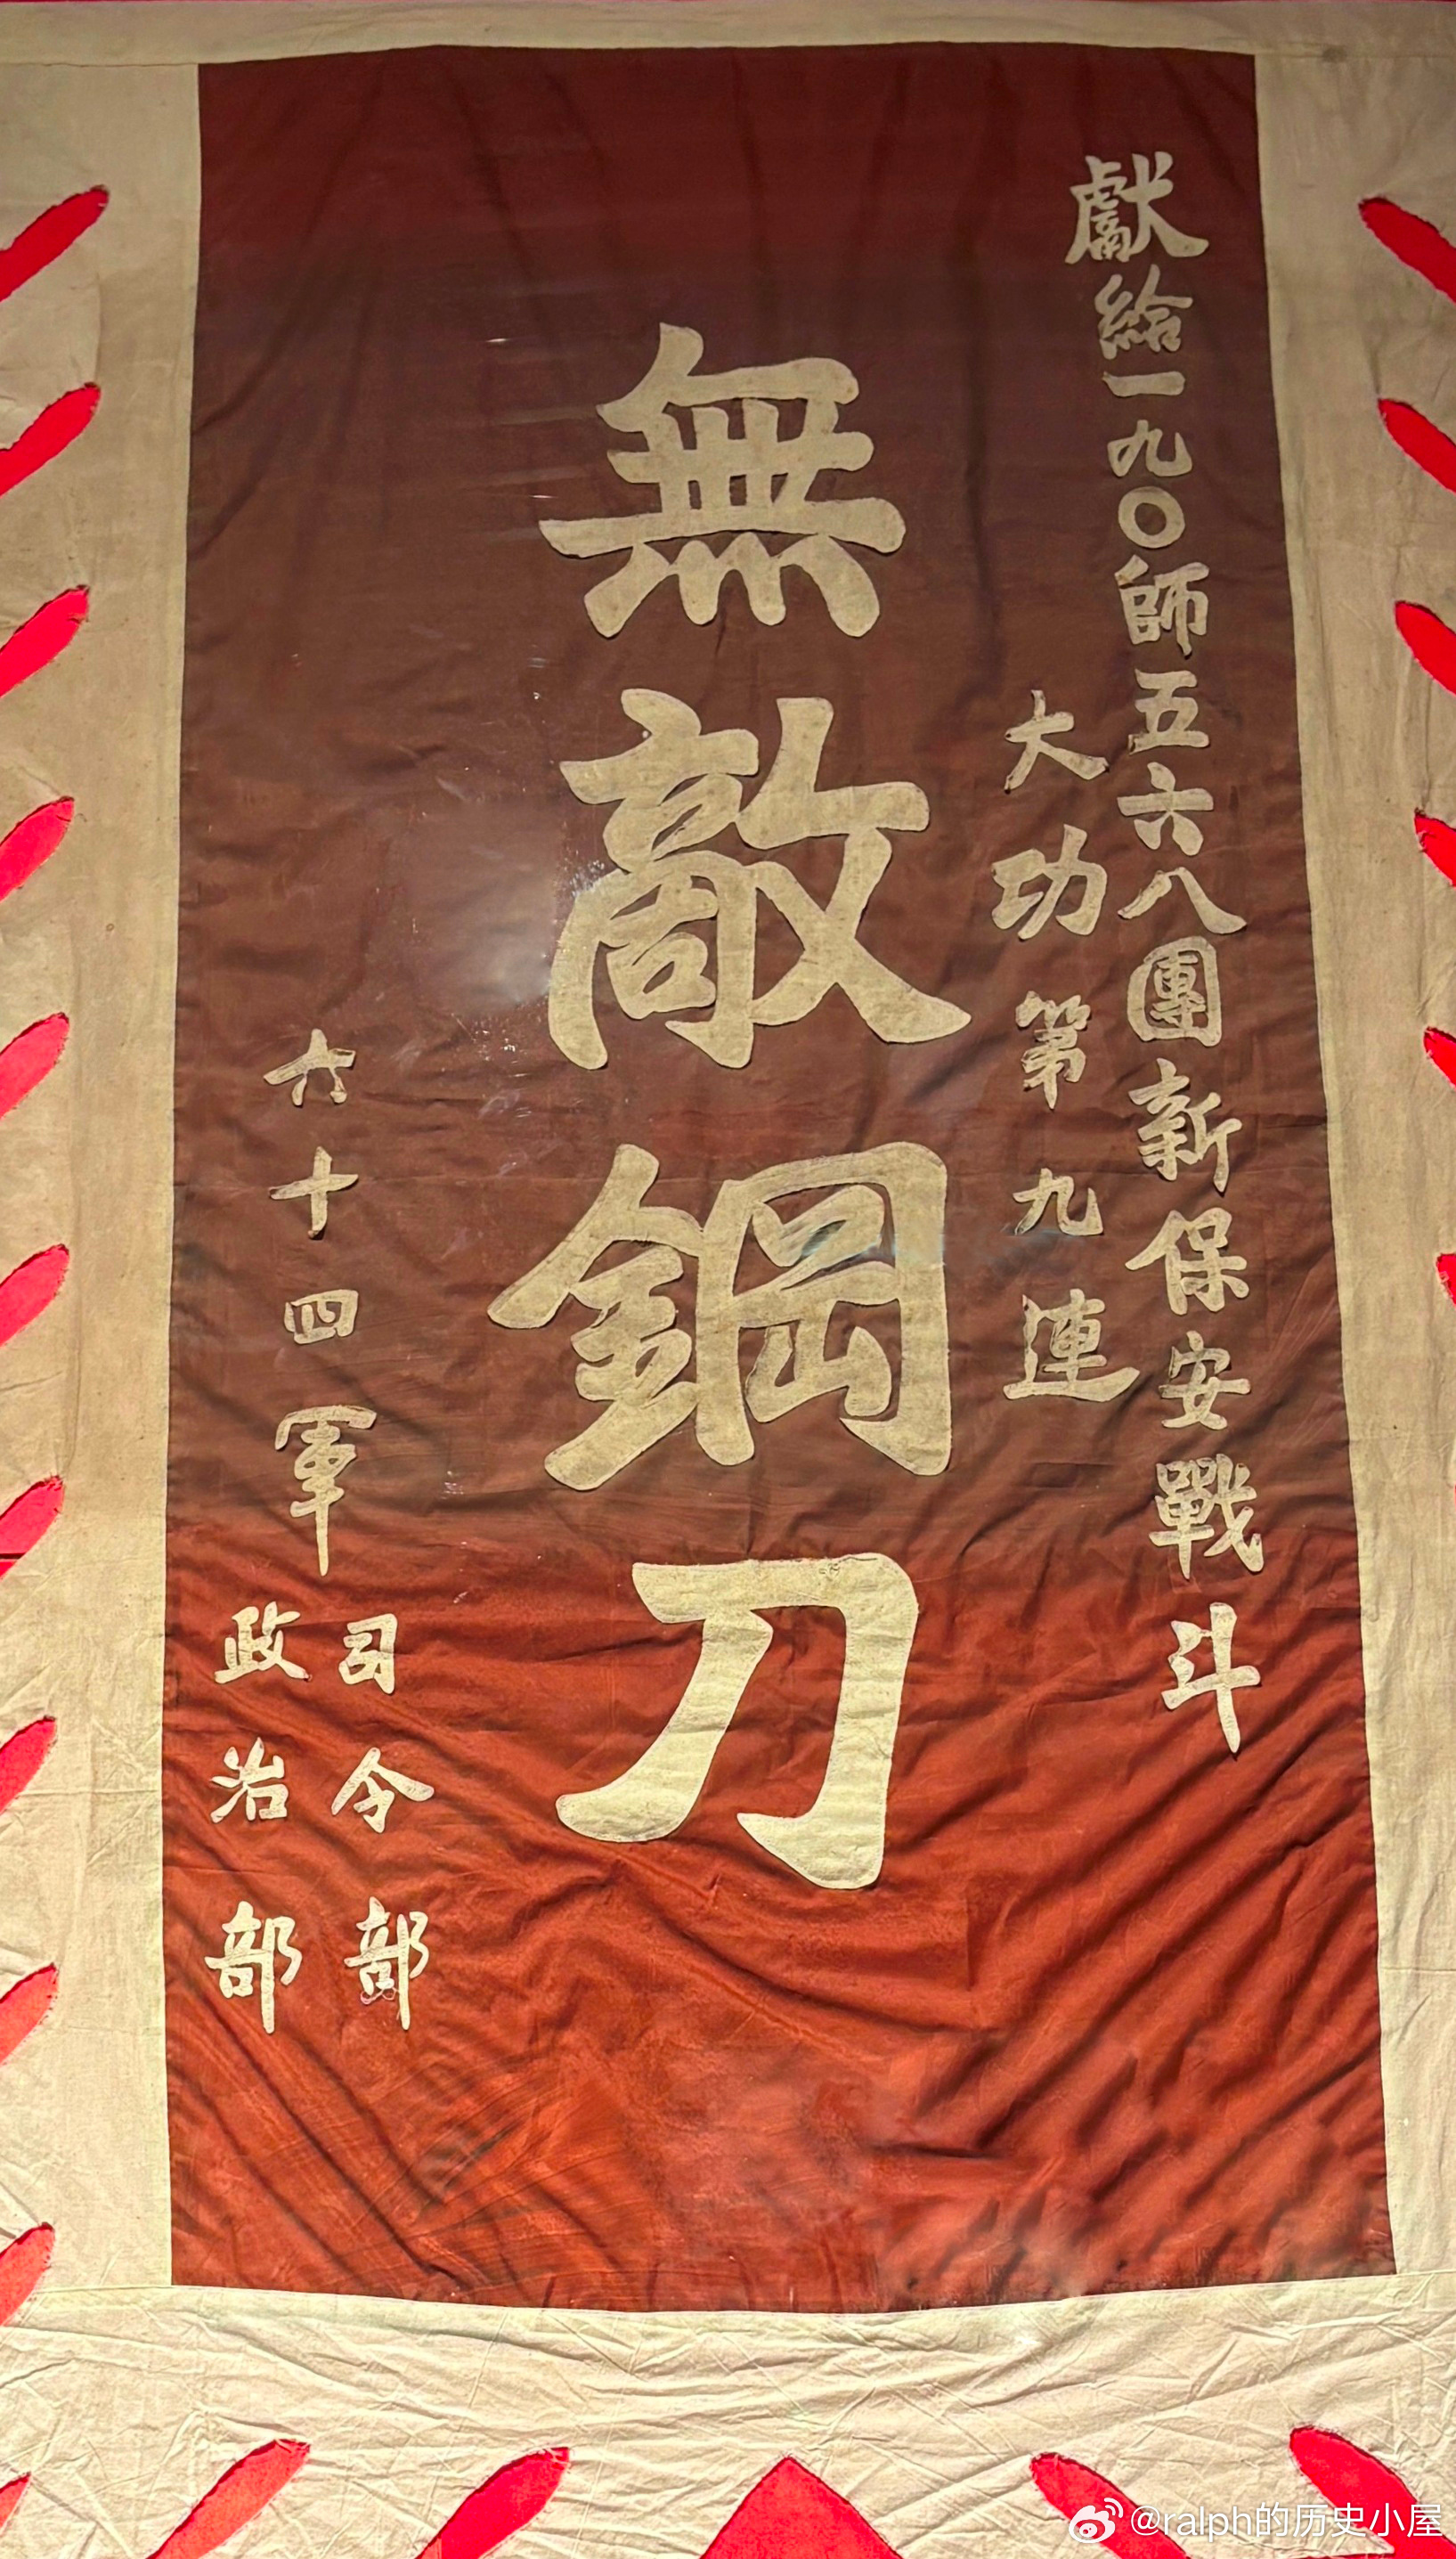 獻給一九〇師五六八團新保安戰斗
大功第九連
無敵鋼刀
六十四軍
司令部
政治部
@ralph的历史小屋